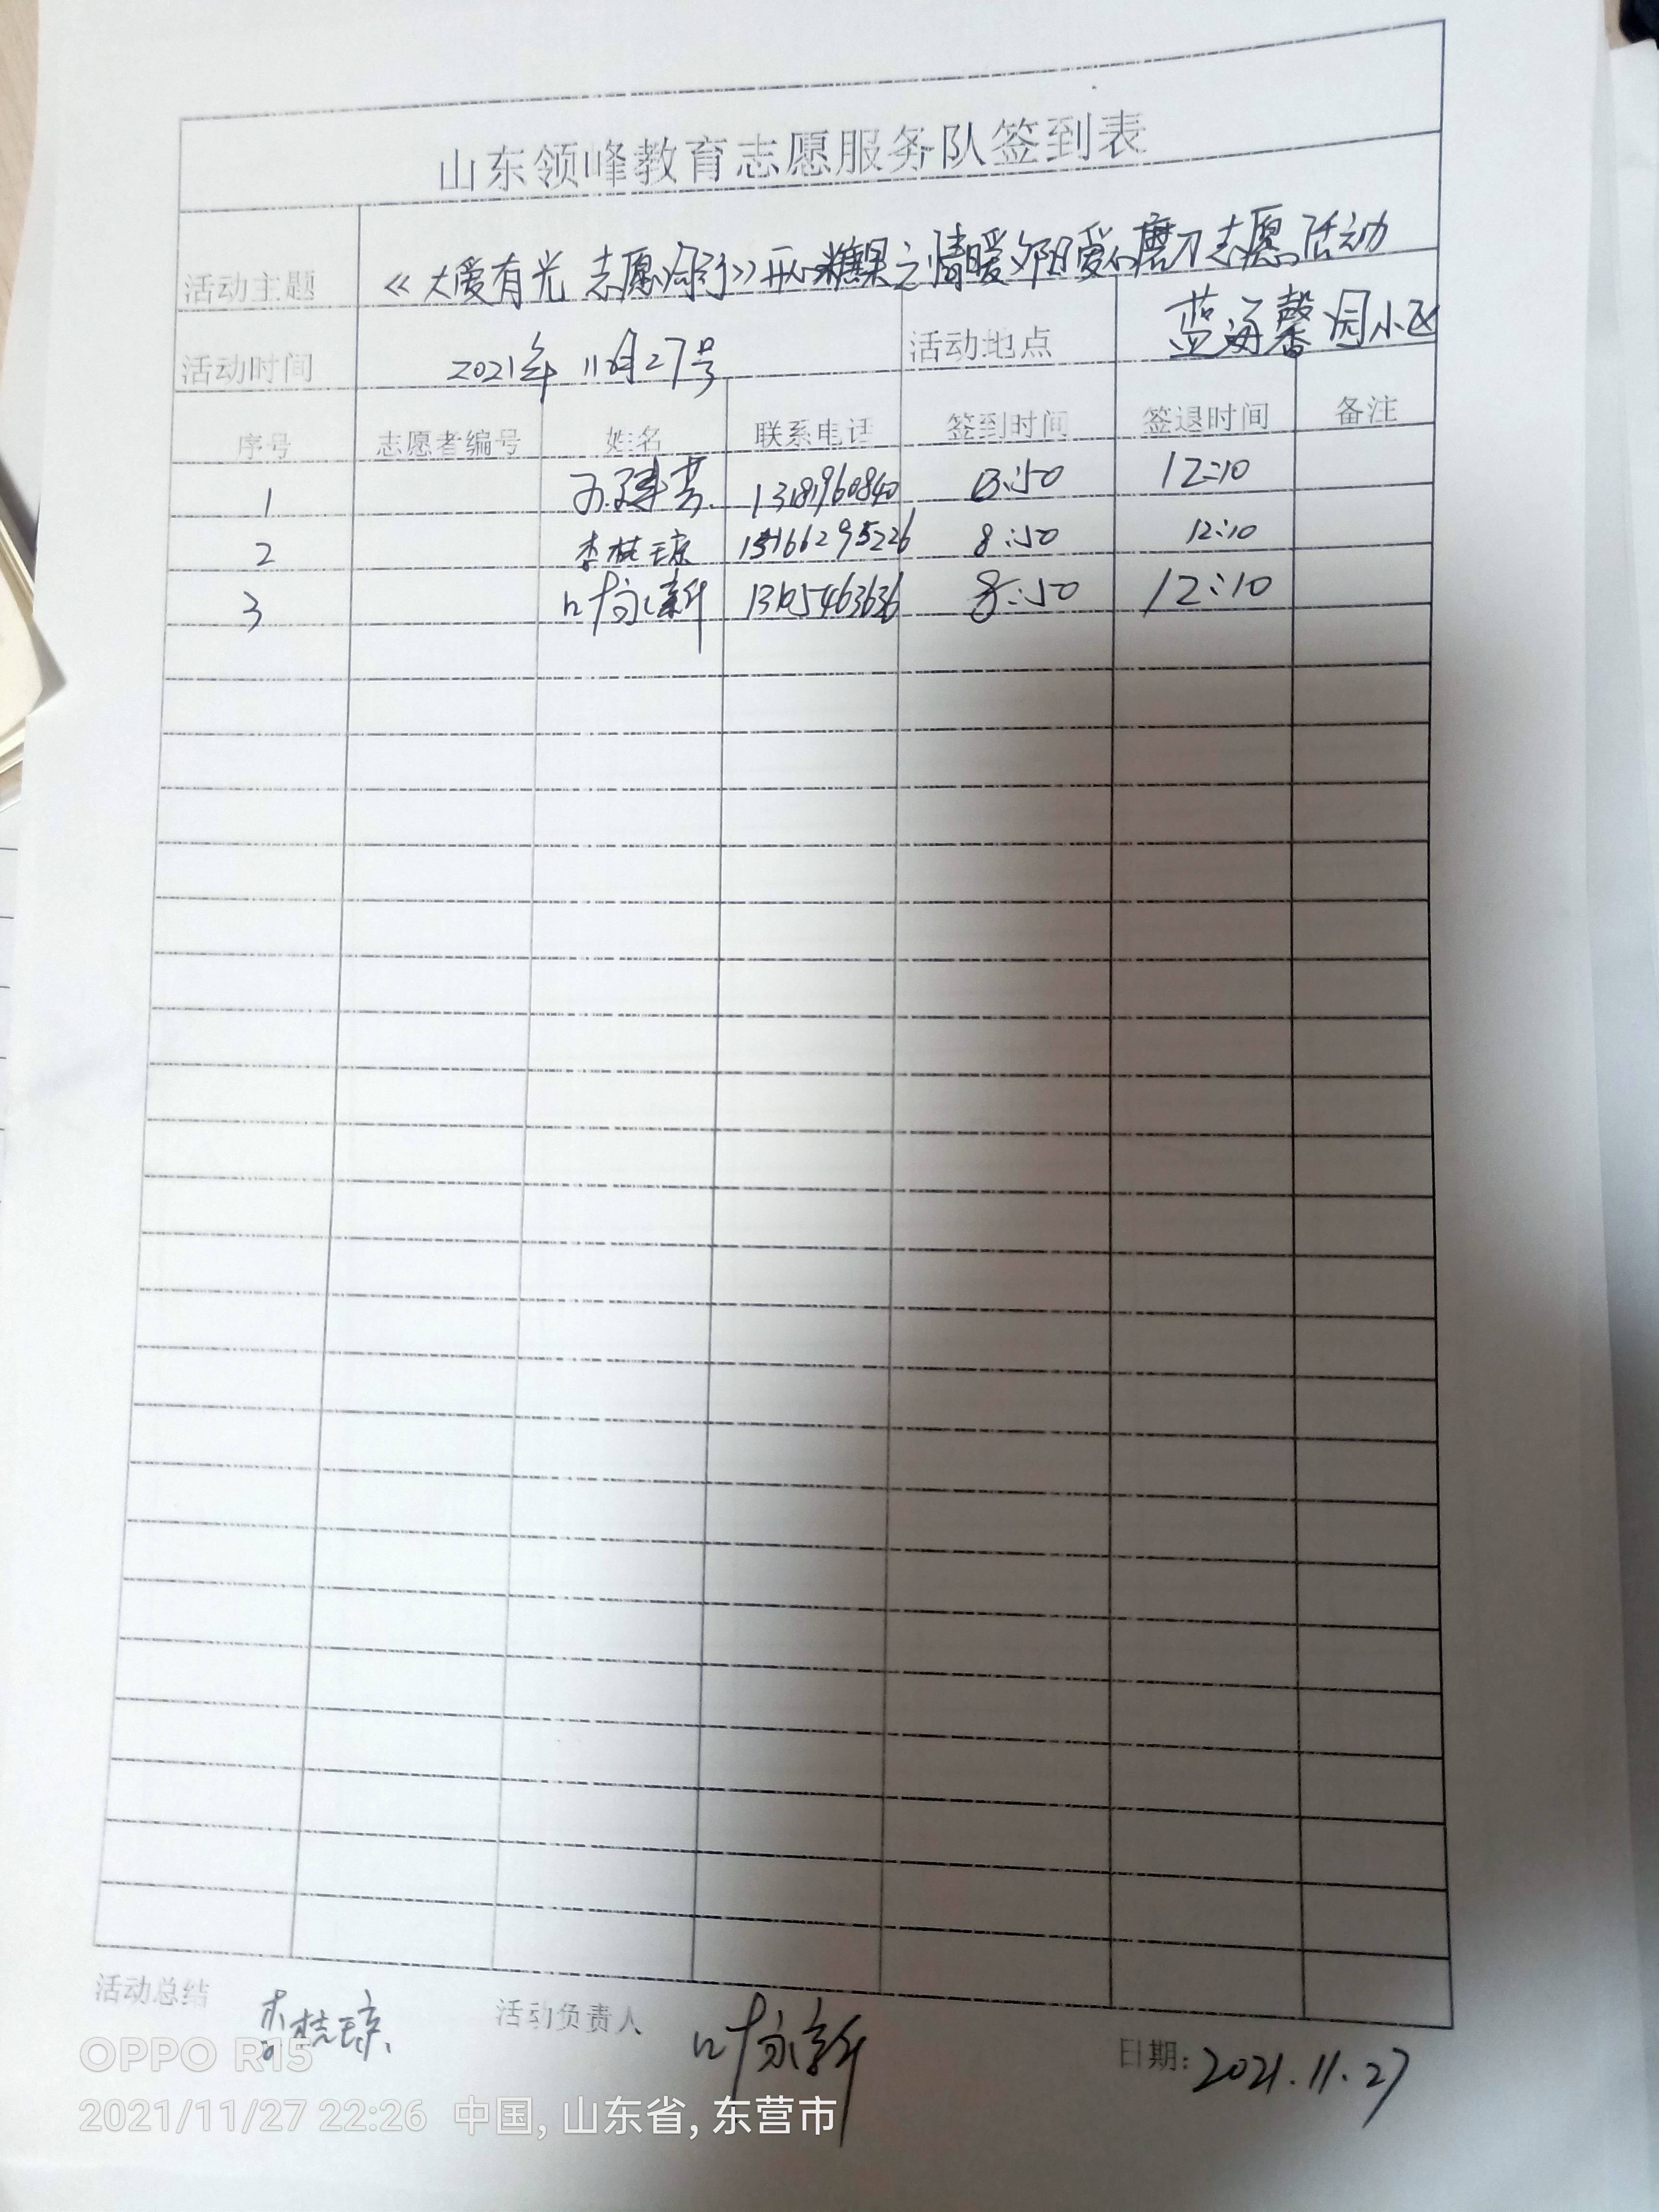 山东领峰教育志愿服务队签到表
活动主题 《大爱有光 志愿同行》开心糖果之情暖夕阳爱心磨刀志愿活动
活动时间 2021年11月27号 活动地点 蓝海馨园小区
序号 志愿者编号 姓名 联系电话 签到时间 签退时间 备注
1 :50 12:10
2 李桂琼 15166295226 8:50 12:10
3 叶永新 8:50 12:10
活动总结 李桂琼 活动负责人 叶永新 日期: 2021.11.27
OPPO R15
2021/11/27 22:26 中国, 山东省, 东营市